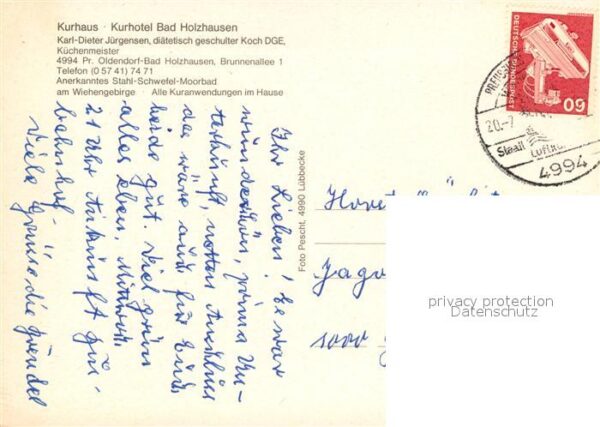 Kurhaus · Kurhotel Bad Holzhausen
Karl-Dieter Jürgensen, diätetisch geschulter Koch DGE,
Küchenmeister
4994 Pr. Oldendorf-Bad Holzhausen, Brunnenallee 1
Telefon (0 57 41) 74 71
Anerkanntes Stahl-Schwefel-Moorbad
am Wiehengebirge · Alle Kuranwendungen im Hause
Ihr Lieben! Es war
wunderschön, prima Un-
terkunft, netten Anschluss
da wäre auch für Euch
beide gut. Viel grün
alles eben. Mittwoch,
21 Uhr Ankunft Gü-
bahnhof.
Viele Grüsse die
Foto Pescht, 4990 Lübbecke
DEUTSCHE BUNDESPOST
60
20.-7
Staatl
Luftku
4994
Horst
Jago
5000
privacy protection
Datenschutz